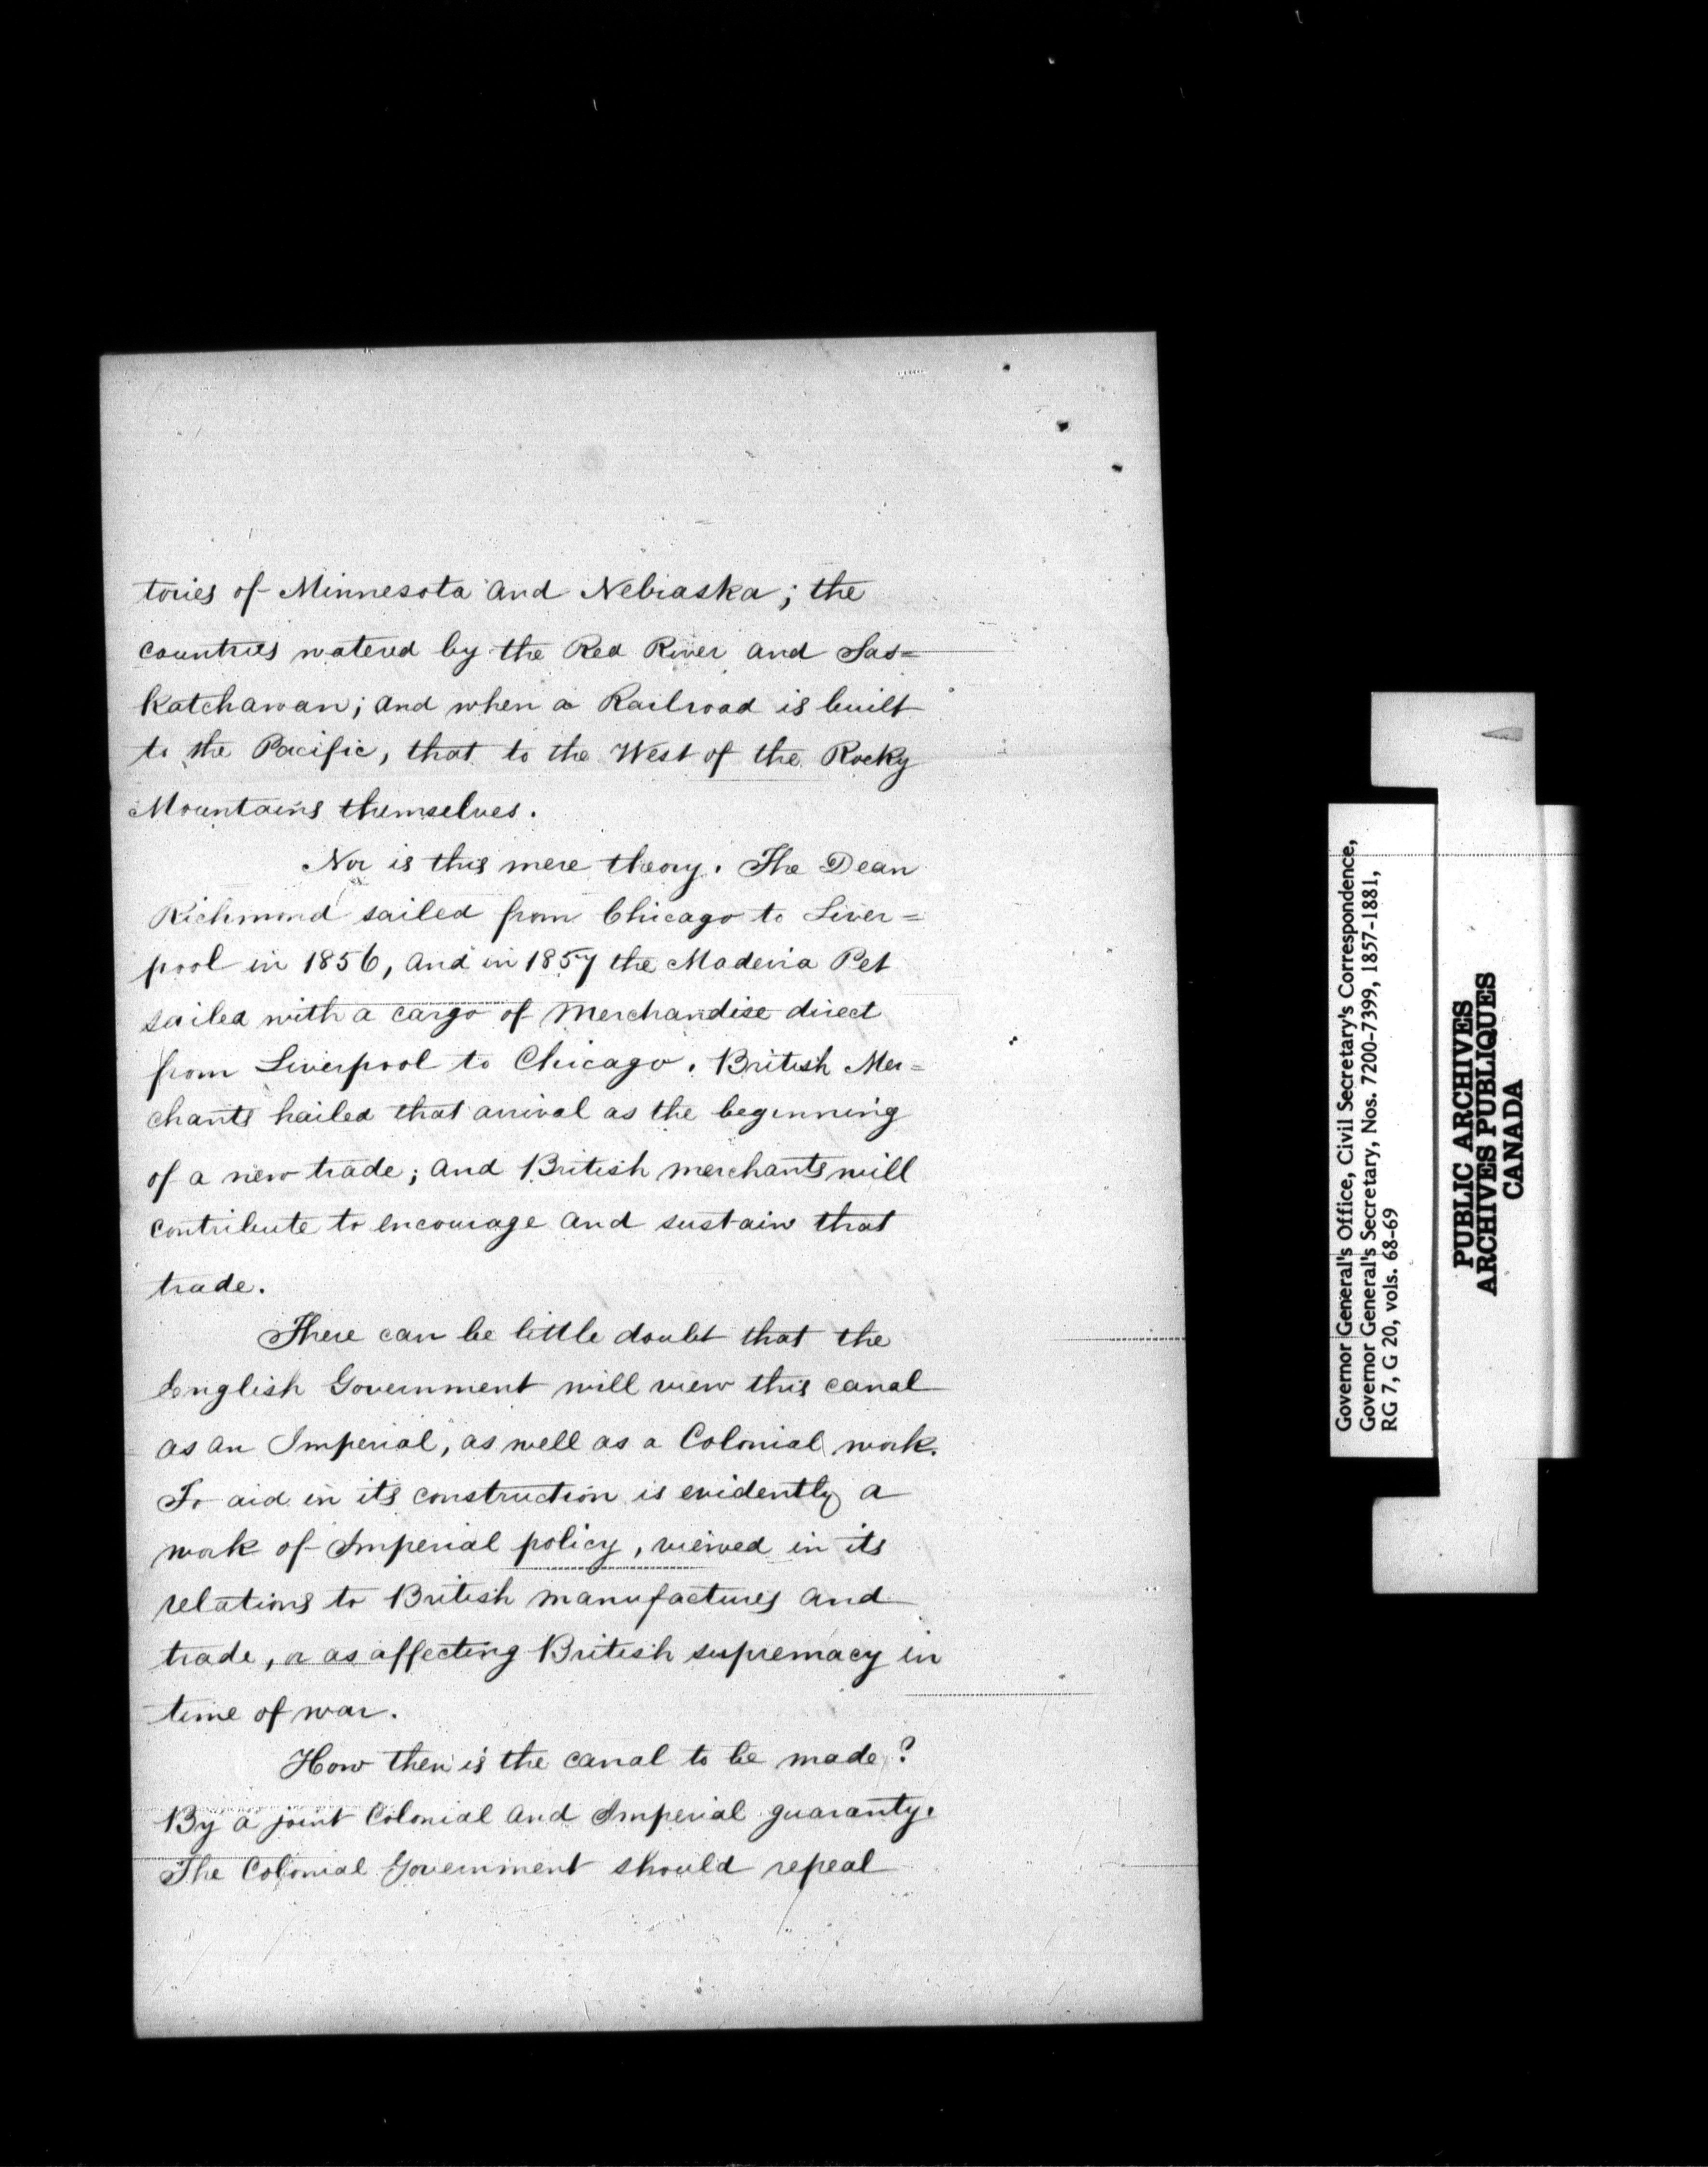 tories of Minnesota and Nebraska; the
countries watered by the Red River and Sas=
katchawan; and when a Railroad is built
to the Pacific, that to the West of the Rocky
Mountains themselves.
Nor is this mere theory. The Dean
Richmond sailed from Chicago to Liver=
pool in 1856, and in 1857 the Maderia Pet
sailed with a cargo of merchandise direct
from Liverpool to Chicago. British Mer=
chants hailed that arrival as the beginning
of a new trade; and British merchants will
contribute to encourage and sustain that
trade.
There can be little doubt that the
English Government will view this canal
as an Imperial, as well as a Colonial work.
To aid in its construction is evidently a
work of Imperial policy, viewed in its
relations to British manufactures and
trade, or as affecting British supremacy in
time of war.
How then is the canal to be made?
By a joint Colonial and Imperial guaranty.
The Colonial Government should repeal
Governor General's Office, Civil Secretary's Correspondence,
Governor General's Secretary, Nos. 7200-7399, 1857-1881,
RG 7, G 20, vols. 68-69
PUBLIC ARCHIVES
ARCHIVES PUBLIQUES
CANADA